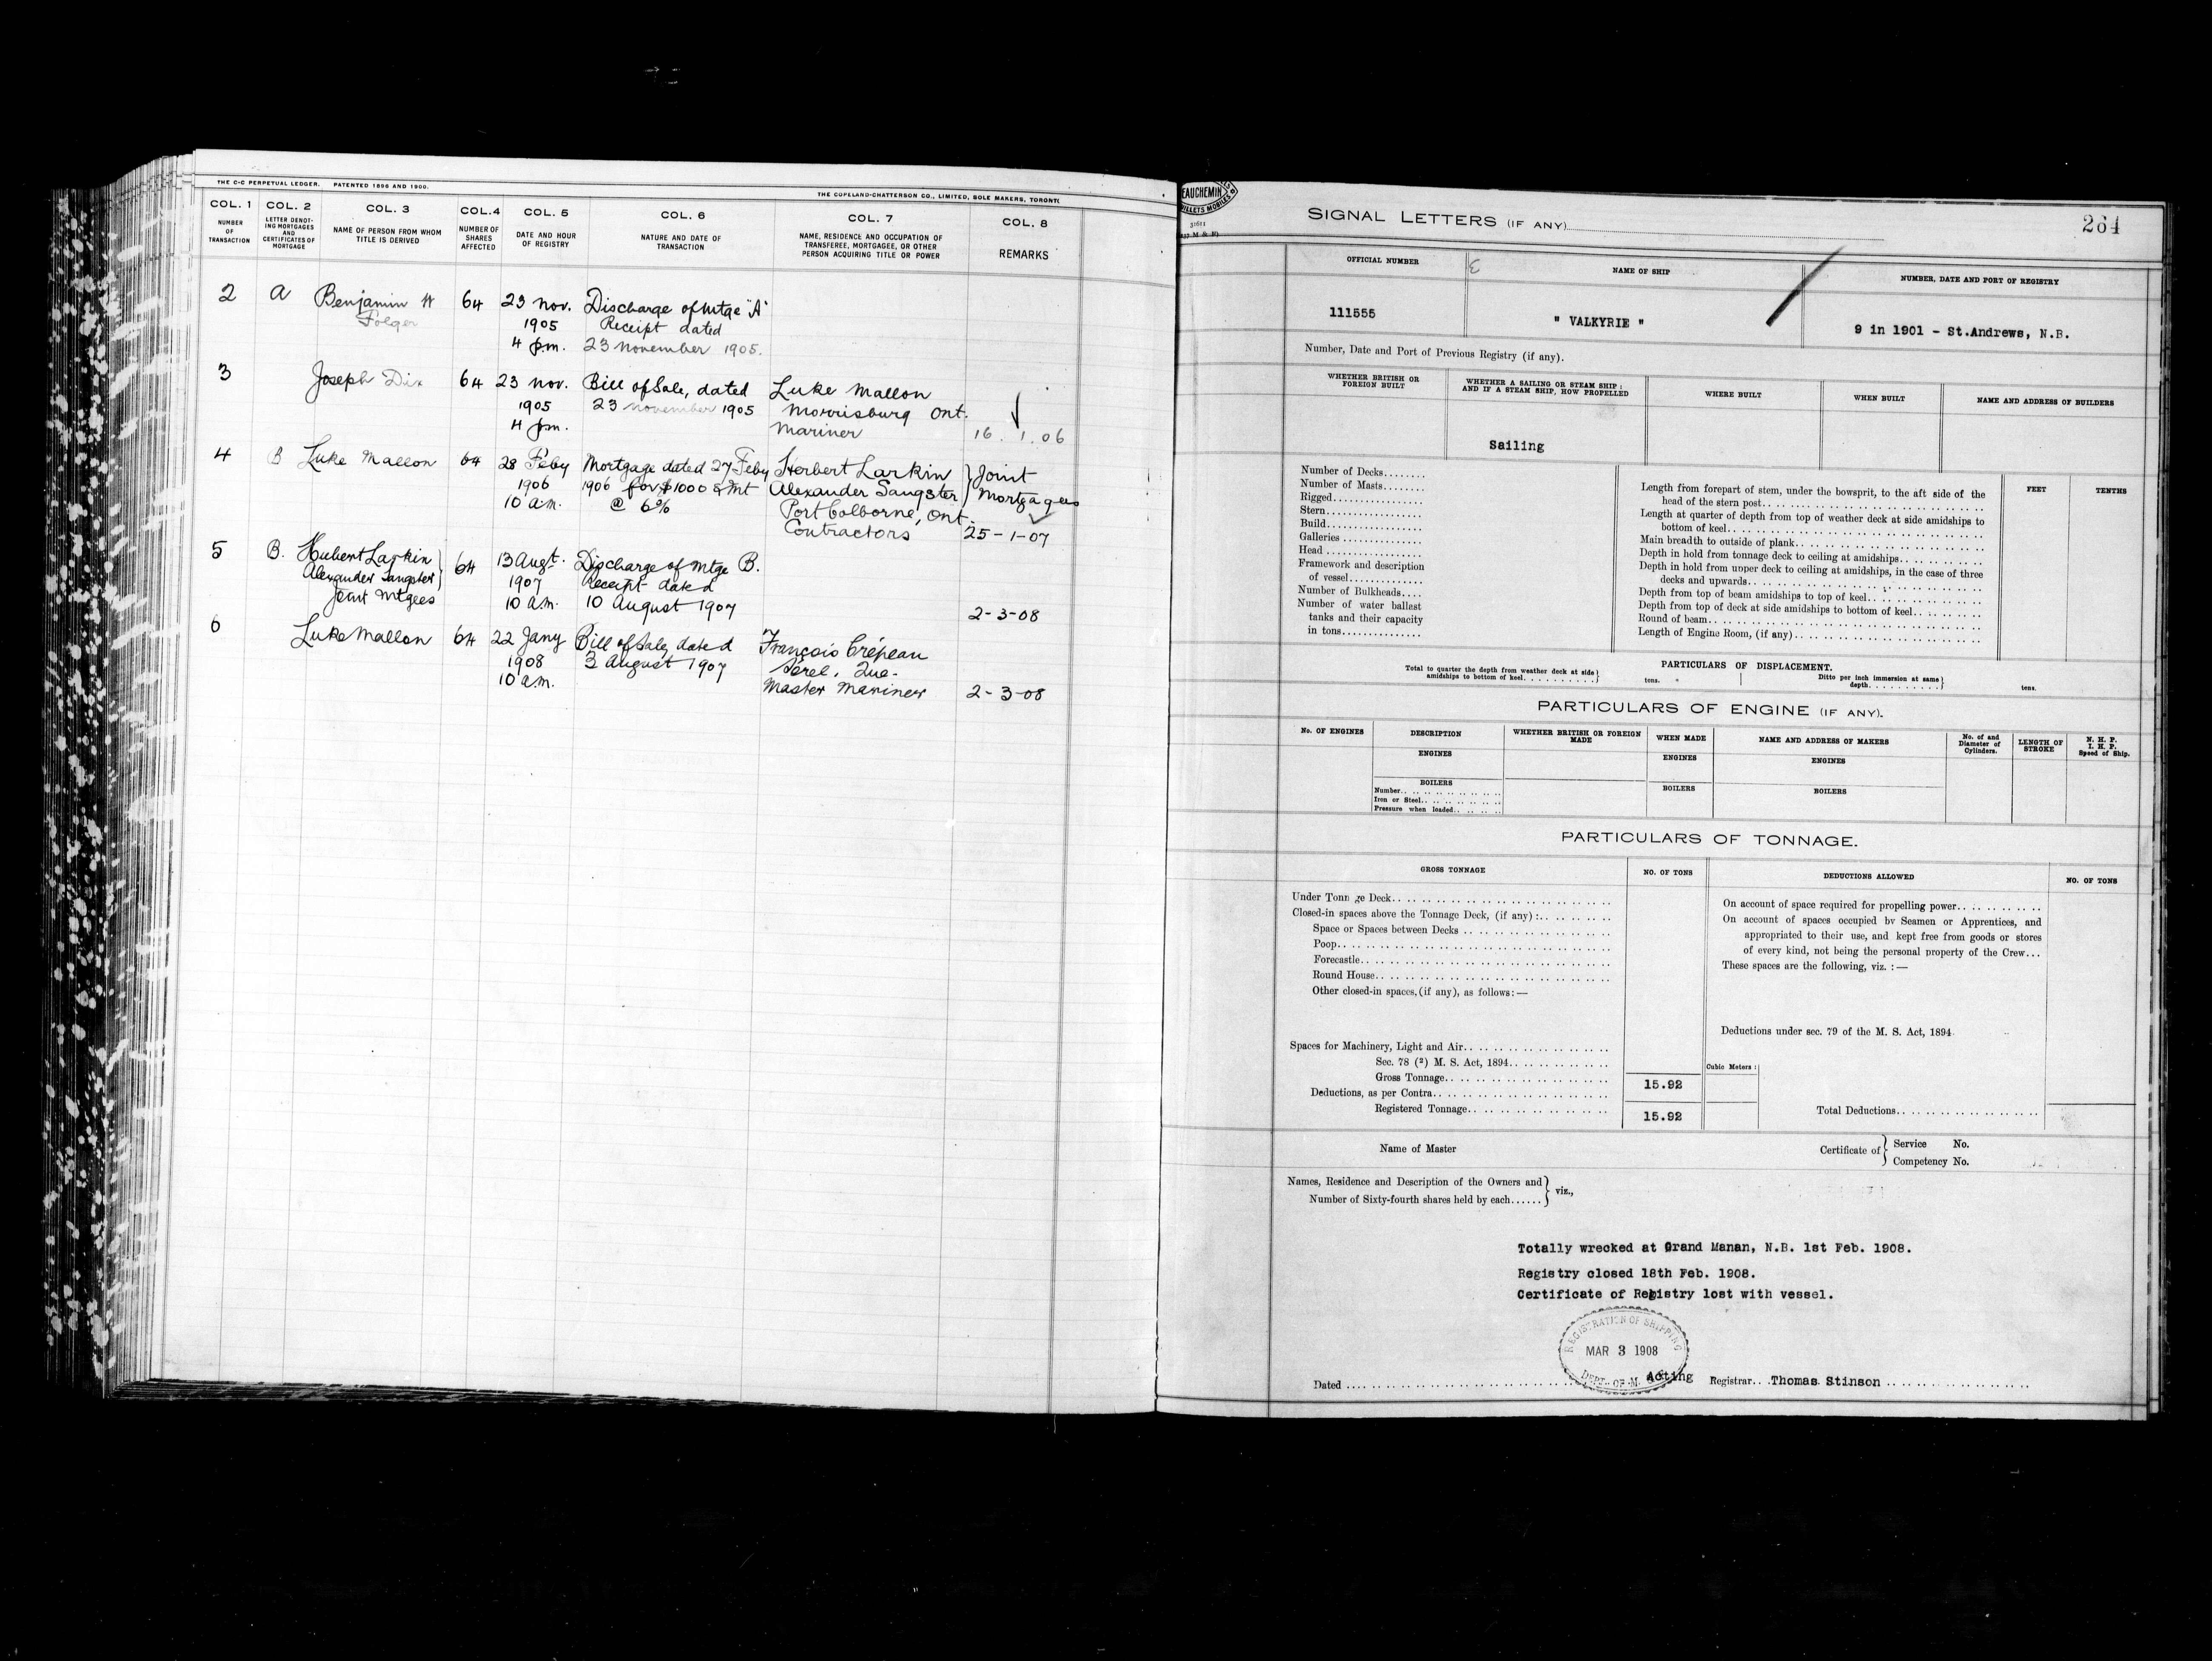 THE C-C PERPETUAL LEDGER. PATENTED 1896 AND 1900.
THE COPELAND-CHATTERSON CO., LIMITED, SOLE MAKERS, TORONTO
COL. 1 COL. 2 COL. 3 COL. 4 COL. 5 COL. 6 COL. 7 COL. 8
NUMBER OF TRANSACTION
LETTER DENOTING MORTGAGES AND CERTIFICATES OF MORTGAGE
NAME OF PERSON FROM WHOM TITLE IS DERIVED
NUMBER OF SHARES AFFECTED
DATE AND HOUR OF REGISTRY
NATURE AND DATE OF TRANSACTION
NAME, RESIDENCE AND OCCUPATION OF TRANSFEREE, MORTGAGEE, OR OTHER PERSON ACQUIRING TITLE OR POWER
REMARKS
2 A Benjamin W 64 23 Nov. Discharge of Mtge "A"
Folger 1905 Receipt dated
4 p.m. 23 November 1905.
3 Joseph Dix 64 23 Nov. Bill of Sale, dated Luke Mallon
1905 23 November 1905 Morrisburg Ont.
4 p.m. Mariner 16.1.06
4 B Luke Mallon 64 28 Feby Mortgage dated 27 Feby Herbert Larkin } Joint
1906 1906 for $1000 & Int Alexander Sangster } Mortgagees
10 a.m. @ 6% Port Colborne, Ont.
Contractors 25-1-07
5 B. Hubert Larkin } 64 13 Augt. Discharge of Mtge B.
Alexander Sangster } 1907 Receipt dated
Joint Mtgees 10 a.m. 10 August 1907
2-3-08
6 Luke Mallon 64 22 Jany Bill of Sale, dated François Crépeau
1908 3 August 1907 Sorel, Que.
10 a.m. Master Mariner 2-3-08
EAUCHEMIN
ILLETS MOBILES
SIGNAL LETTERS (IF ANY)
264
OFFICIAL NUMBER NAME OF SHIP NUMBER, DATE AND PORT OF REGISTRY
111555 " VALKYRIE " 9 in 1901 - St.Andrews, N.B.
Number, Date and Port of Previous Registry (if any).
WHETHER BRITISH OR FOREIGN BUILT
WHETHER A SAILING OR STEAM SHIP; AND IF A STEAM SHIP, HOW PROPELLED
WHERE BUILT
WHEN BUILT
NAME AND ADDRESS OF BUILDERS
Sailing
Number of Decks
Number of Masts
Rigged
Stern
Build
Galleries
Head
Framework and description
of vessel
Number of Bulkheads
Number of water ballast
tanks and their capacity
in tons
FEET TENTHS
Length from forepart of stem, under the bowsprit, to the aft side of the
head of the stern post
Length at quarter of depth from top of weather deck at side amidships to
bottom of keel
Main breadth to outside of plank
Depth in hold from tonnage deck to ceiling at amidships
Depth in hold from upper deck to ceiling at amidships, in the case of three
decks and upwards
Depth from top of beam amidships to top of keel
Depth from top of deck at side amidships to bottom of keel
Round of beam
Length of Engine Room, (if any)
PARTICULARS OF DISPLACEMENT.
Total to quarter the depth from weather deck at side
amidships to bottom of keel } tons.
Ditto per inch immersion at same
depth } tens.
PARTICULARS OF ENGINE (IF ANY).
No. OF ENGINES DESCRIPTION WHETHER BRITISH OR FOREIGN MADE WHEN MADE NAME AND ADDRESS OF MAKERS No. of and Diameter of Cylinders. LENGTH OF STROKE N. H. P. I. H. P. Speed of Ship.
ENGINES ENGINES ENGINES
BOILERS BOILERS BOILERS
Number
Iron or Steel
Pressure when loaded
PARTICULARS OF TONNAGE.
GROSS TONNAGE NO. OF TONS DEDUCTIONS ALLOWED NO. OF TONS
Under Tonnage Deck
Closed-in spaces above the Tonnage Deck, (if any):
Space or Spaces between Decks
Poop
Forecastle
Round House
Other closed-in spaces, (if any), as follows:—
Spaces for Machinery, Light and Air
Sec. 78 (2) M. S. Act, 1894
Gross Tonnage 15.92
Deductions, as per Contra
Registered Tonnage 15.92
Cubic Meters:
On account of space required for propelling power
On account of spaces occupied by Seamen or Apprentices, and
appropriated to their use, and kept free from goods or stores
of every kind, not being the personal property of the Crew
These spaces are the following, viz.:—
Deductions under sec. 79 of the M. S. Act, 1894
Total Deductions
Name of Master
Certificate of { Service No.
Competency No.
Names, Residence and Description of the Owners and
Number of Sixty-fourth shares held by each } viz.,
Totally wrecked at Grand Manan, N.B. 1st Feb. 1908.
Registry closed 18th Feb. 1908.
Certificate of Registry lost with vessel.
REGISTRATION OF SHIPPING
MAR 3 1908
DEPT. OF M.
Dated Acting Registrar Thomas Stinson